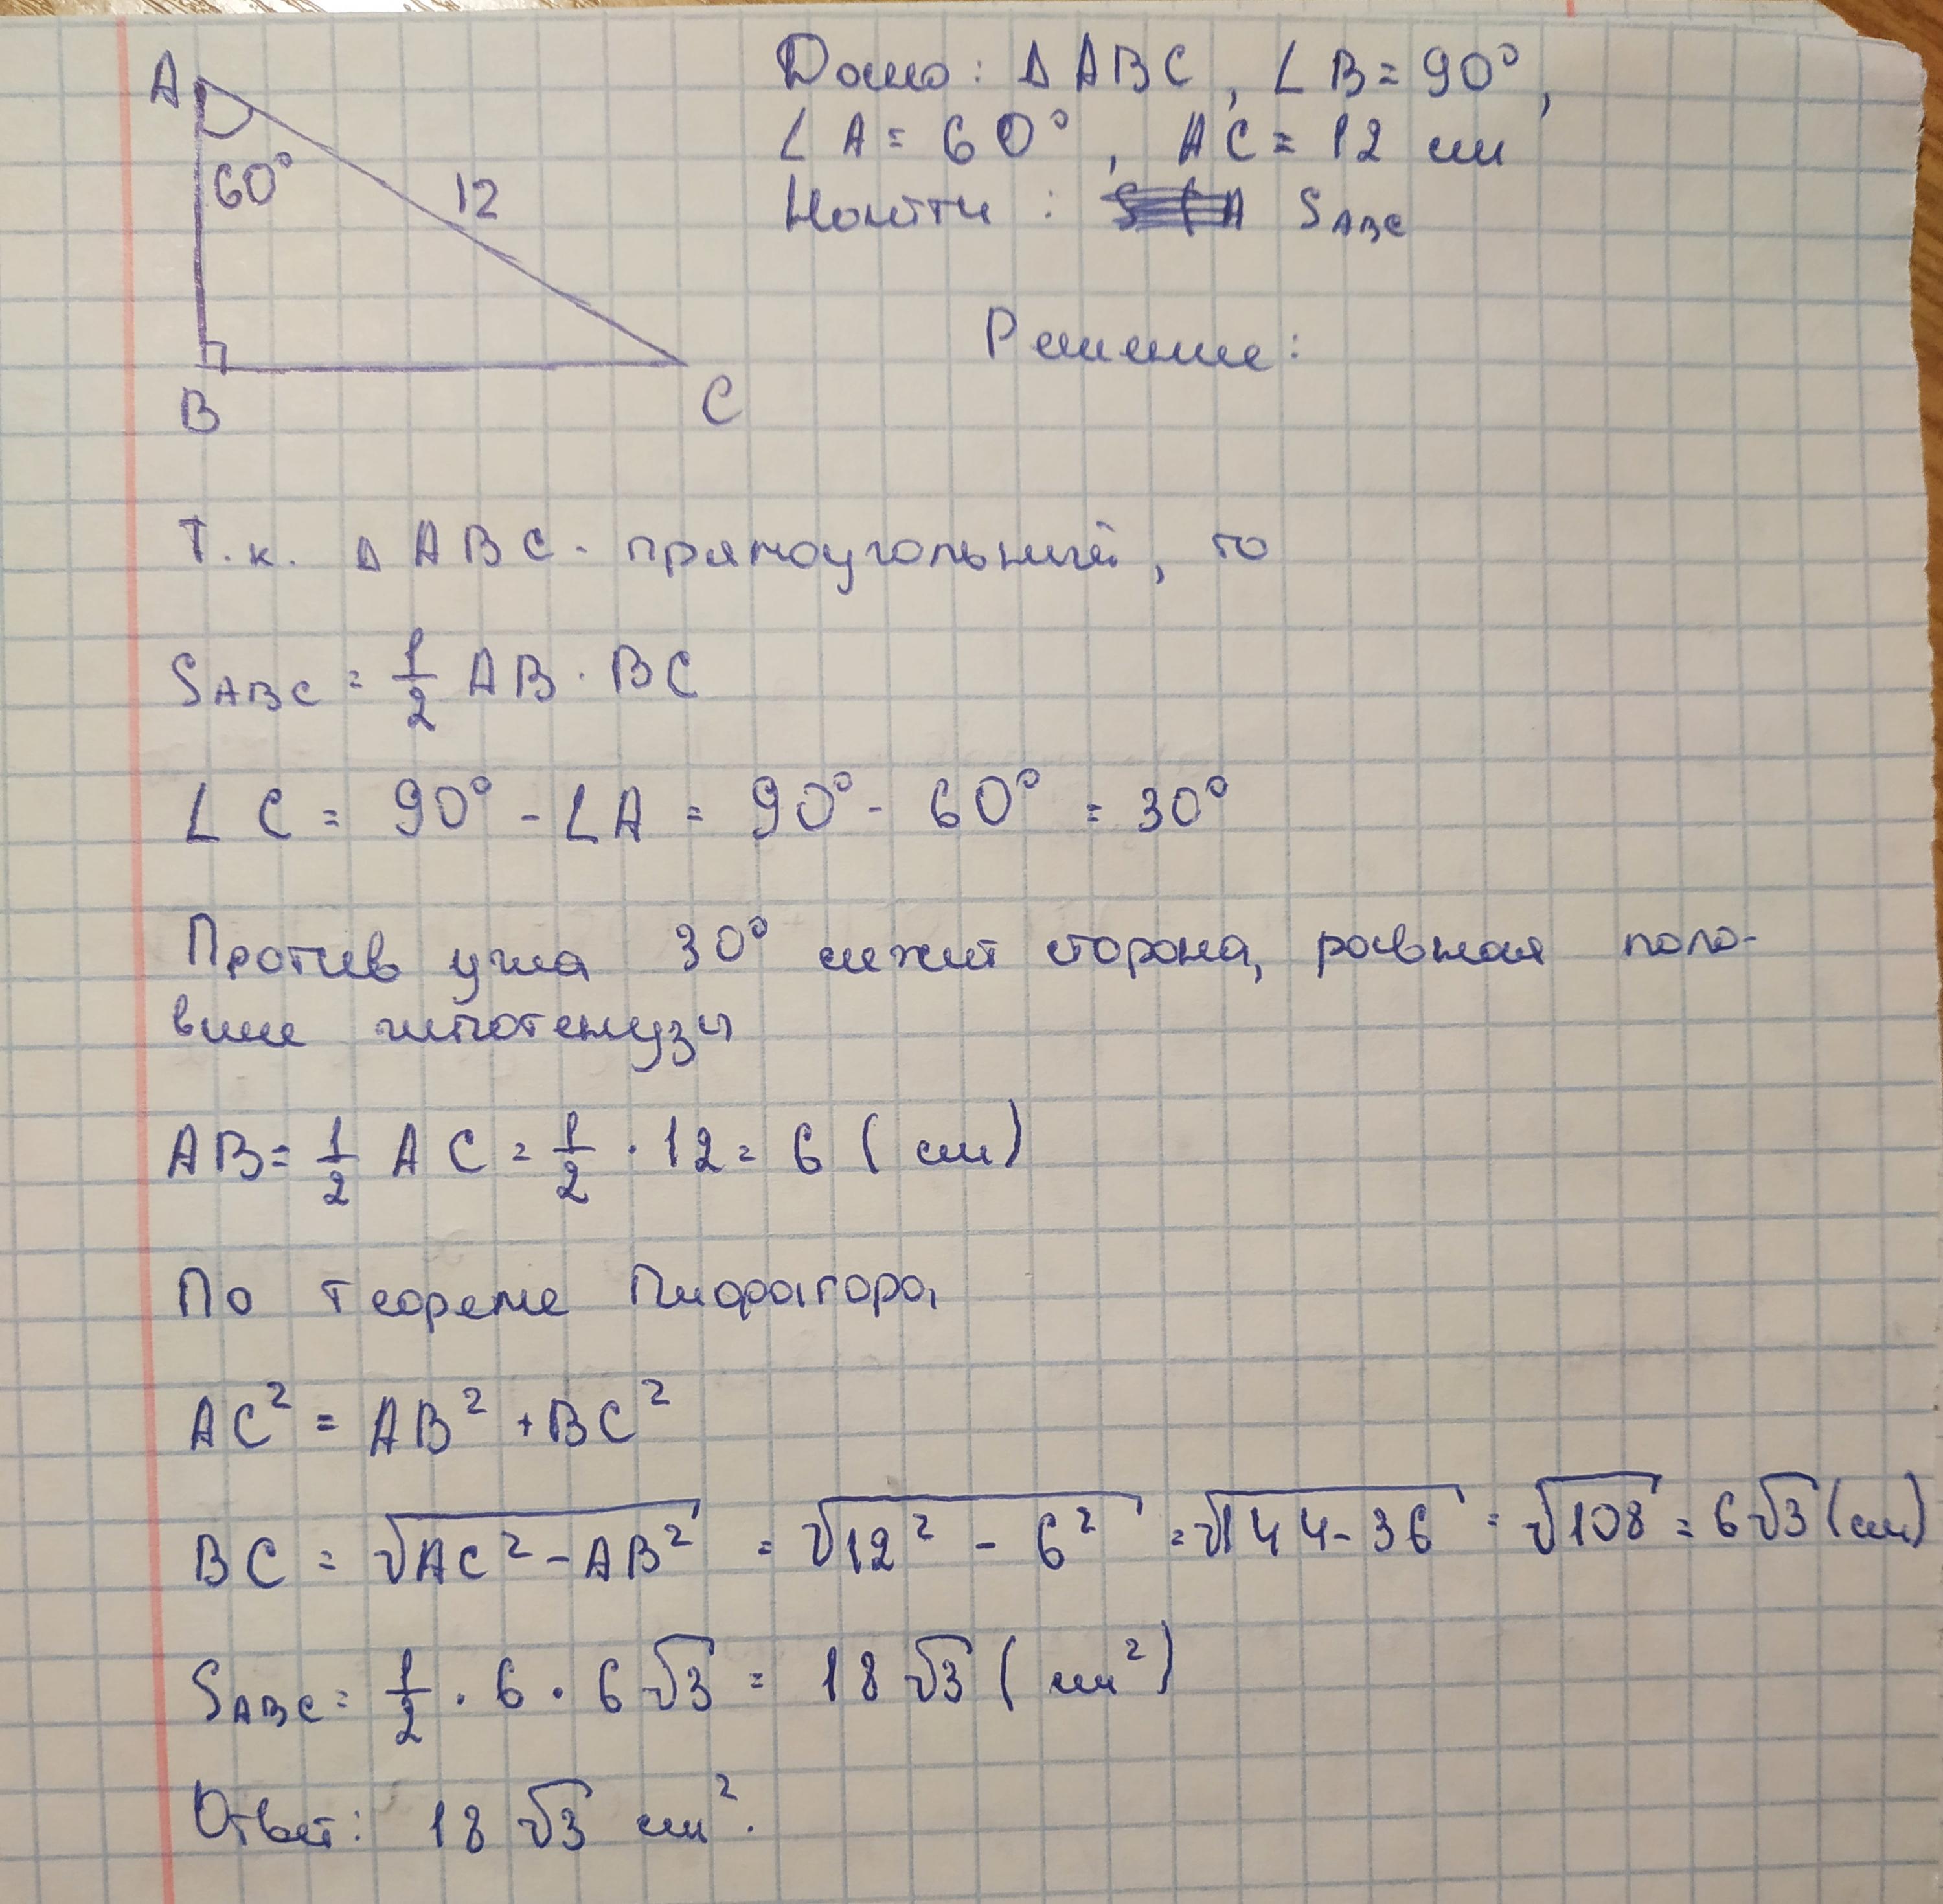 A
60°
12
B
C
Дано: Δ ABC, ∠B = 90°,
∠A = 60°, AC = 12 см
Найти: S_ABC
Решение:
Т.к. Δ ABC - прямоугольный, то
S_ABC = 1/2 AB · BC
∠C = 90° - ∠A = 90° - 60° = 30°
Против угла 30° лежит сторона, равная поло-
вине гипотенузы
AB = 1/2 AC = 1/2 · 12 = 6 (см)
По теореме Пифагора
AC² = AB² + BC²
BC = √(AC² - AB²) = √(12² - 6²) = √(144 - 36) = √108 = 6√3 (см)
S_ABC = 1/2 · 6 · 6√3 = 18√3 (см²)
Ответ: 18√3 см².